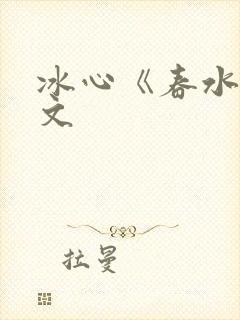 冰心《春水
文
拉曼